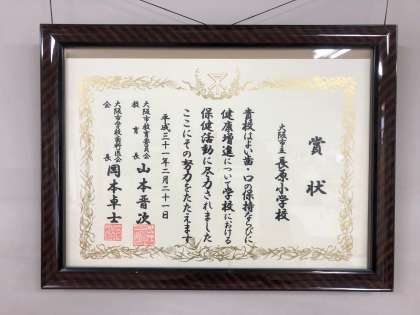 賞状
大阪市立 長原小学校
貴校はよい歯・口の保持ならびに
健康増進について学校における
保健活動に尽力されました
ここにその努力をたたえます
平成三十一年二月二十一日
大阪市教育委員会
教育長 山本晋次
大阪市学校歯科医会
会長 岡本卓士